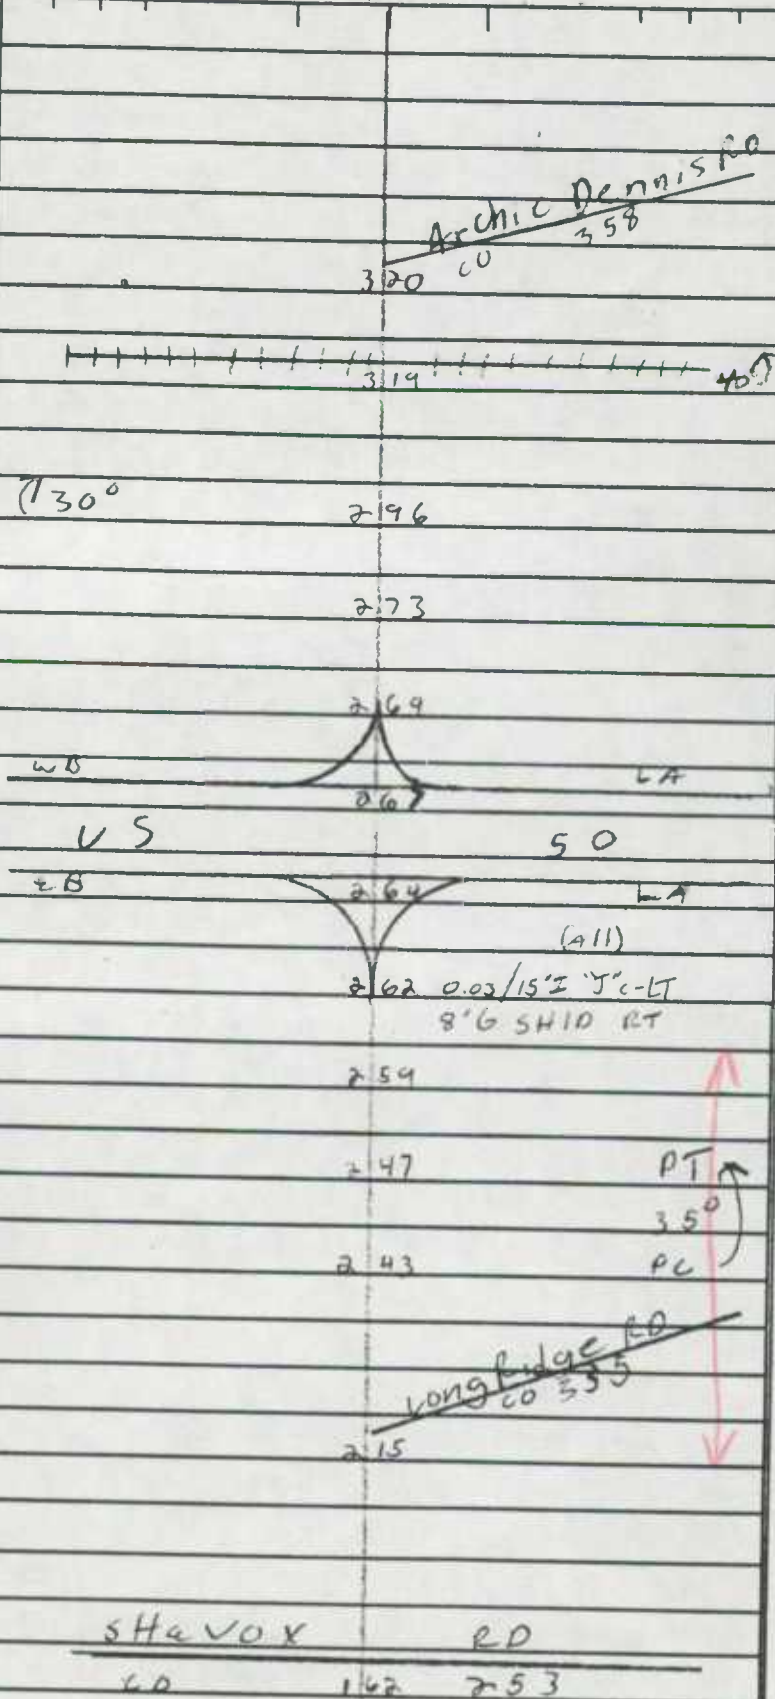 Archie Dennis RD
CO 358
3 20
3 19
40
30°
2 96
2 73
2 69
WB LA
2 67
US 50
EB 2 64 LA
(All)
2 62 0.03/15'I "J"C-LT
8'G SHLD RT
2 59
2 47 PT
35°
2 43 PC
Long Ridge RD
CO 355
2 15
SHAVOX RD
CO 1 62 253